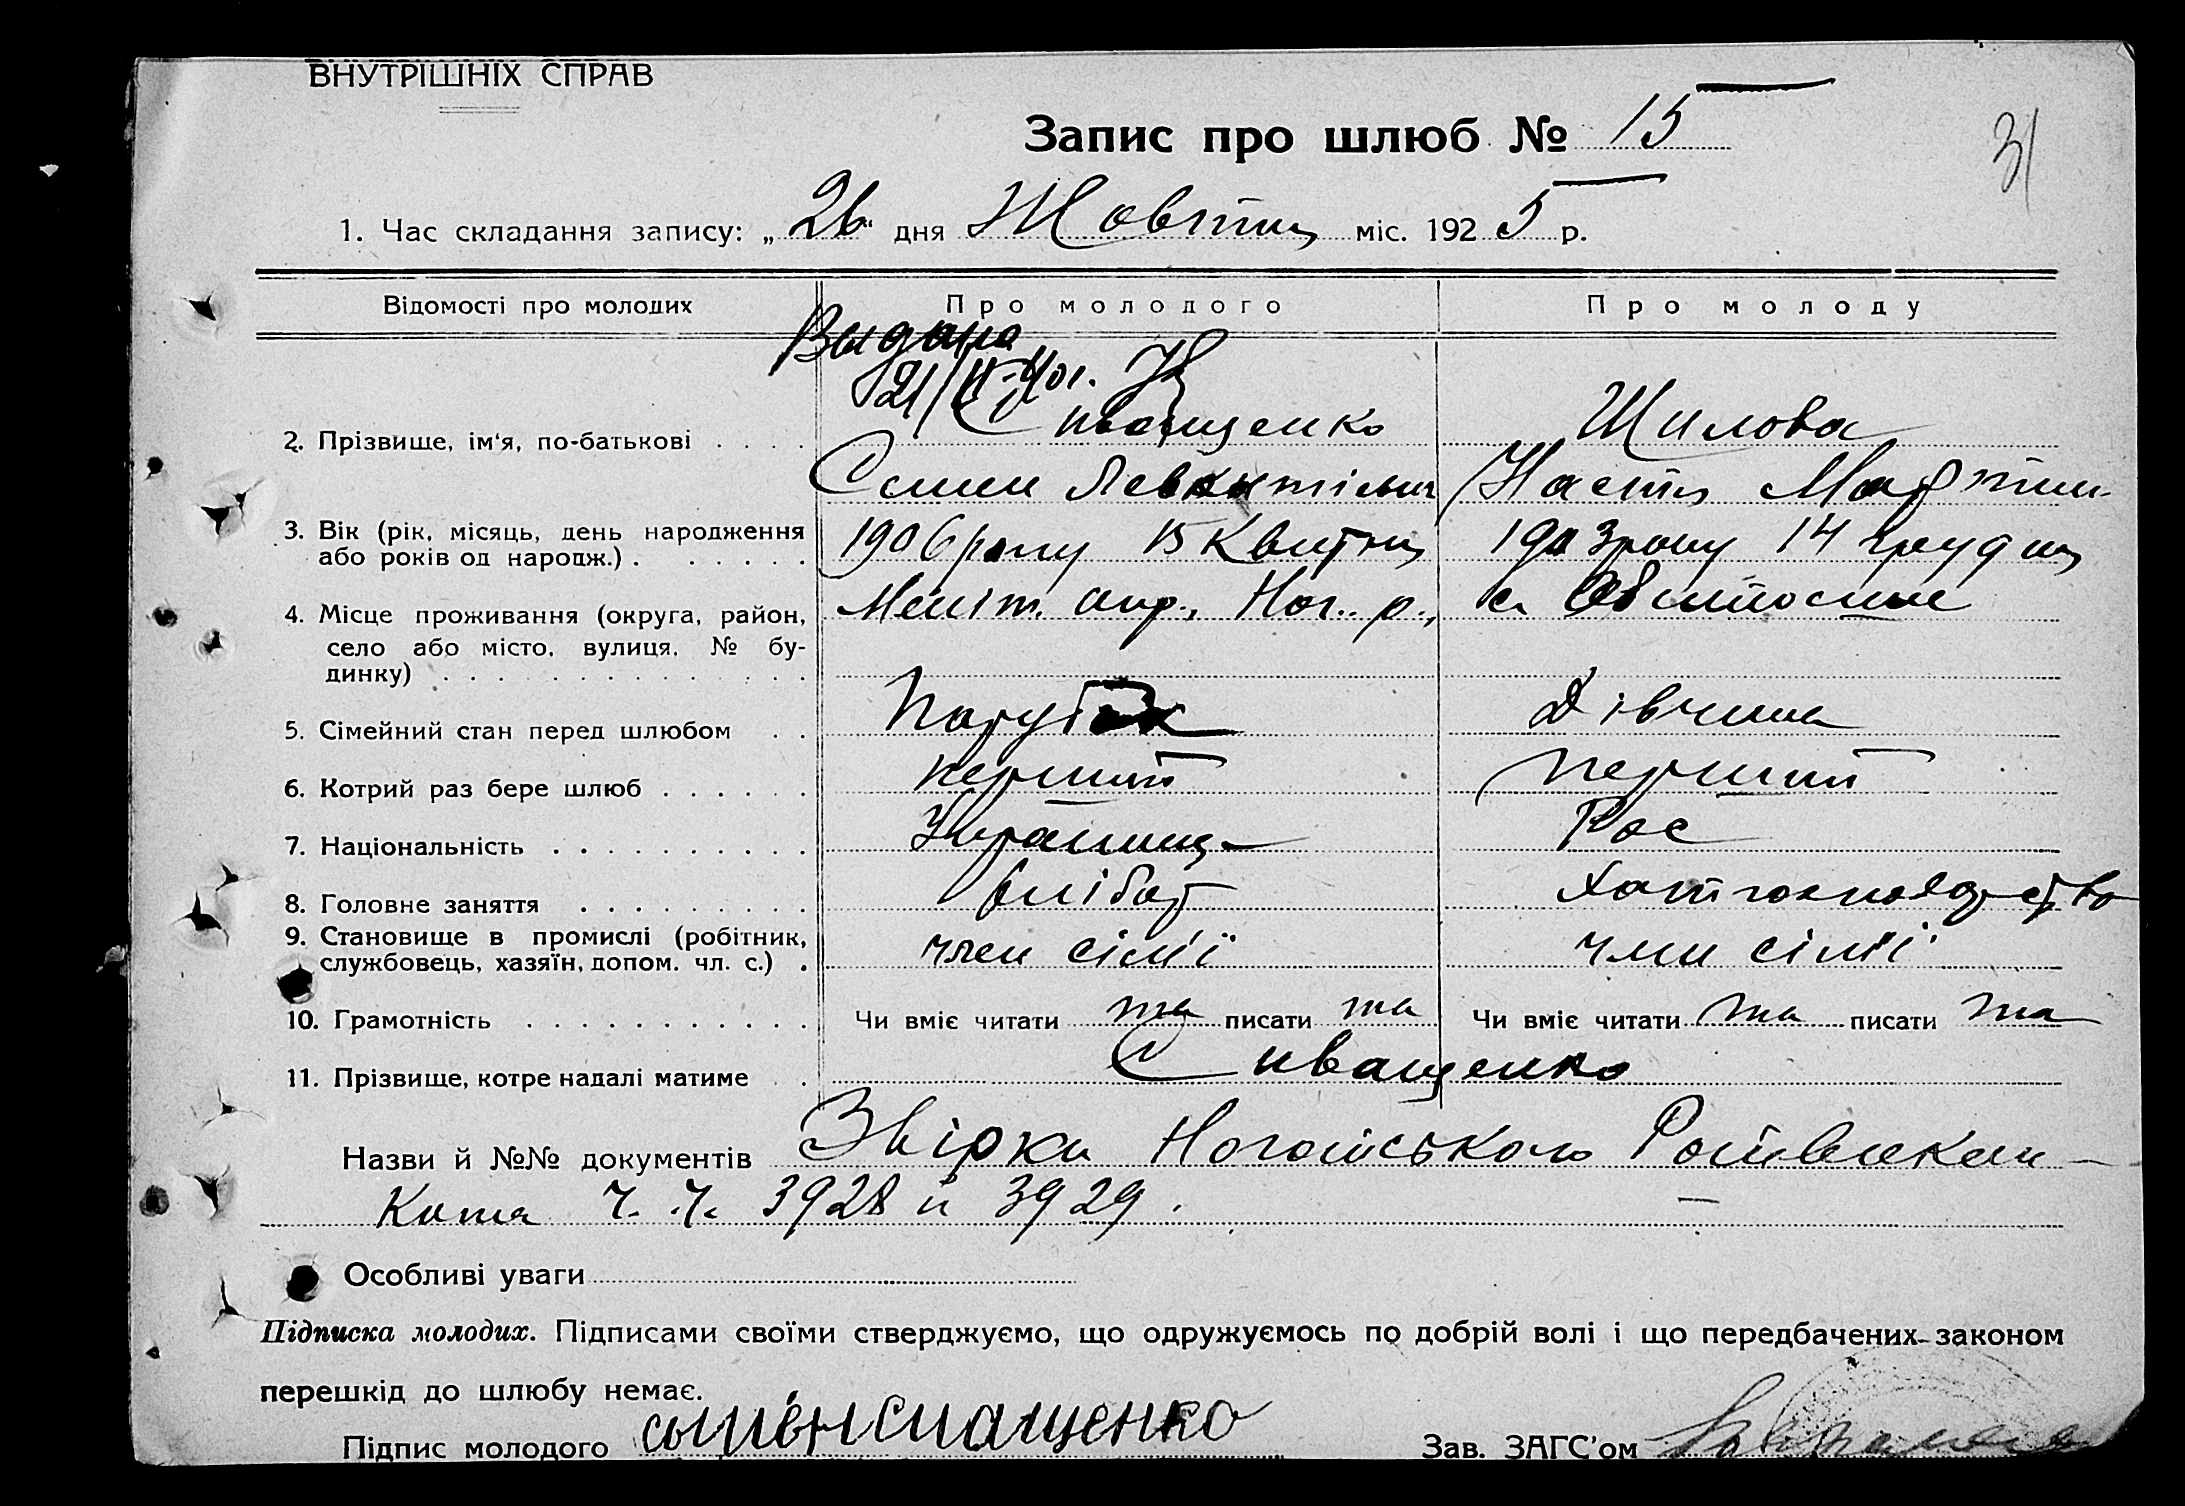 ВНУТРІШНІХ СПРАВ
Запис про шлюб № 15
31
1. Час складання запису: „26“ дня Жовтня міс. 1925 р.
Відомості про молодих Про молодого Про молоду
Выдана
21/
2. Прізвище, ім'я, по-батькові . . . . Сиващенко Шилова
Семен Настя
3. Вік (рік, місяць, день народження 1906 року 15 Квітня 1903 року 14 грудня
або років од народж.) . . . . . .
4. Місце проживання (округа, район, Меліт. окр., Ног. р., с.
село або місто, вулиця, № бу-
динку) . . . . . . . . . . . . . .
5. Сімейний стан перед шлюбом . . Парубок Дівчина
6. Котрий раз бере шлюб . . . . . . перший перший
7. Національність . . . . . . . . . . Рос
8. Головне заняття . . . . . . . . . хлібор
9. Становище в промислі (робітник, член сім'ї член сім'ї
службовець, хазяїн, допом. чл. с.) .
10. Грамотність . . . . . . . . . . . Чи вміє читати та писати та Чи вміє читати та писати та
11. Прізвище, котре надалі матиме . . Сиващенко
Назви й №№ документів Ногайського
Кома ч. ч. 3928 й 3929.
Особливі уваги
Підписка молодих. Підписами своїми стверджуємо, що одружуємось по добрій волі і що передбачених законом
перешкід до шлюбу немає.
Підпис молодого Зав. ЗАГС'ом